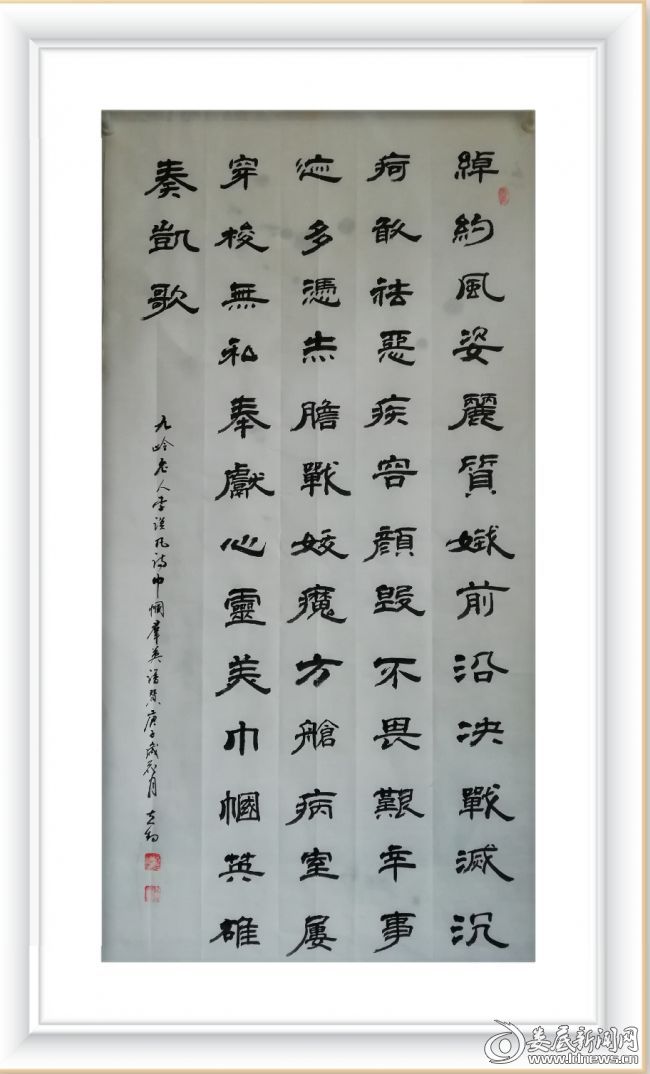 綽約風姿麗質娥前沿決戰滅沉
疴敢祛惡疾容顏毀不畏艱辛事
迹多憑赤膽戰妖魔方艙病室屢
穿梭無私奉獻心靈美巾幗英雄
奏凱歌
老人李凡詩巾幗羣英譜庚子歲月
娄底新闻网
www.ldnews.cn